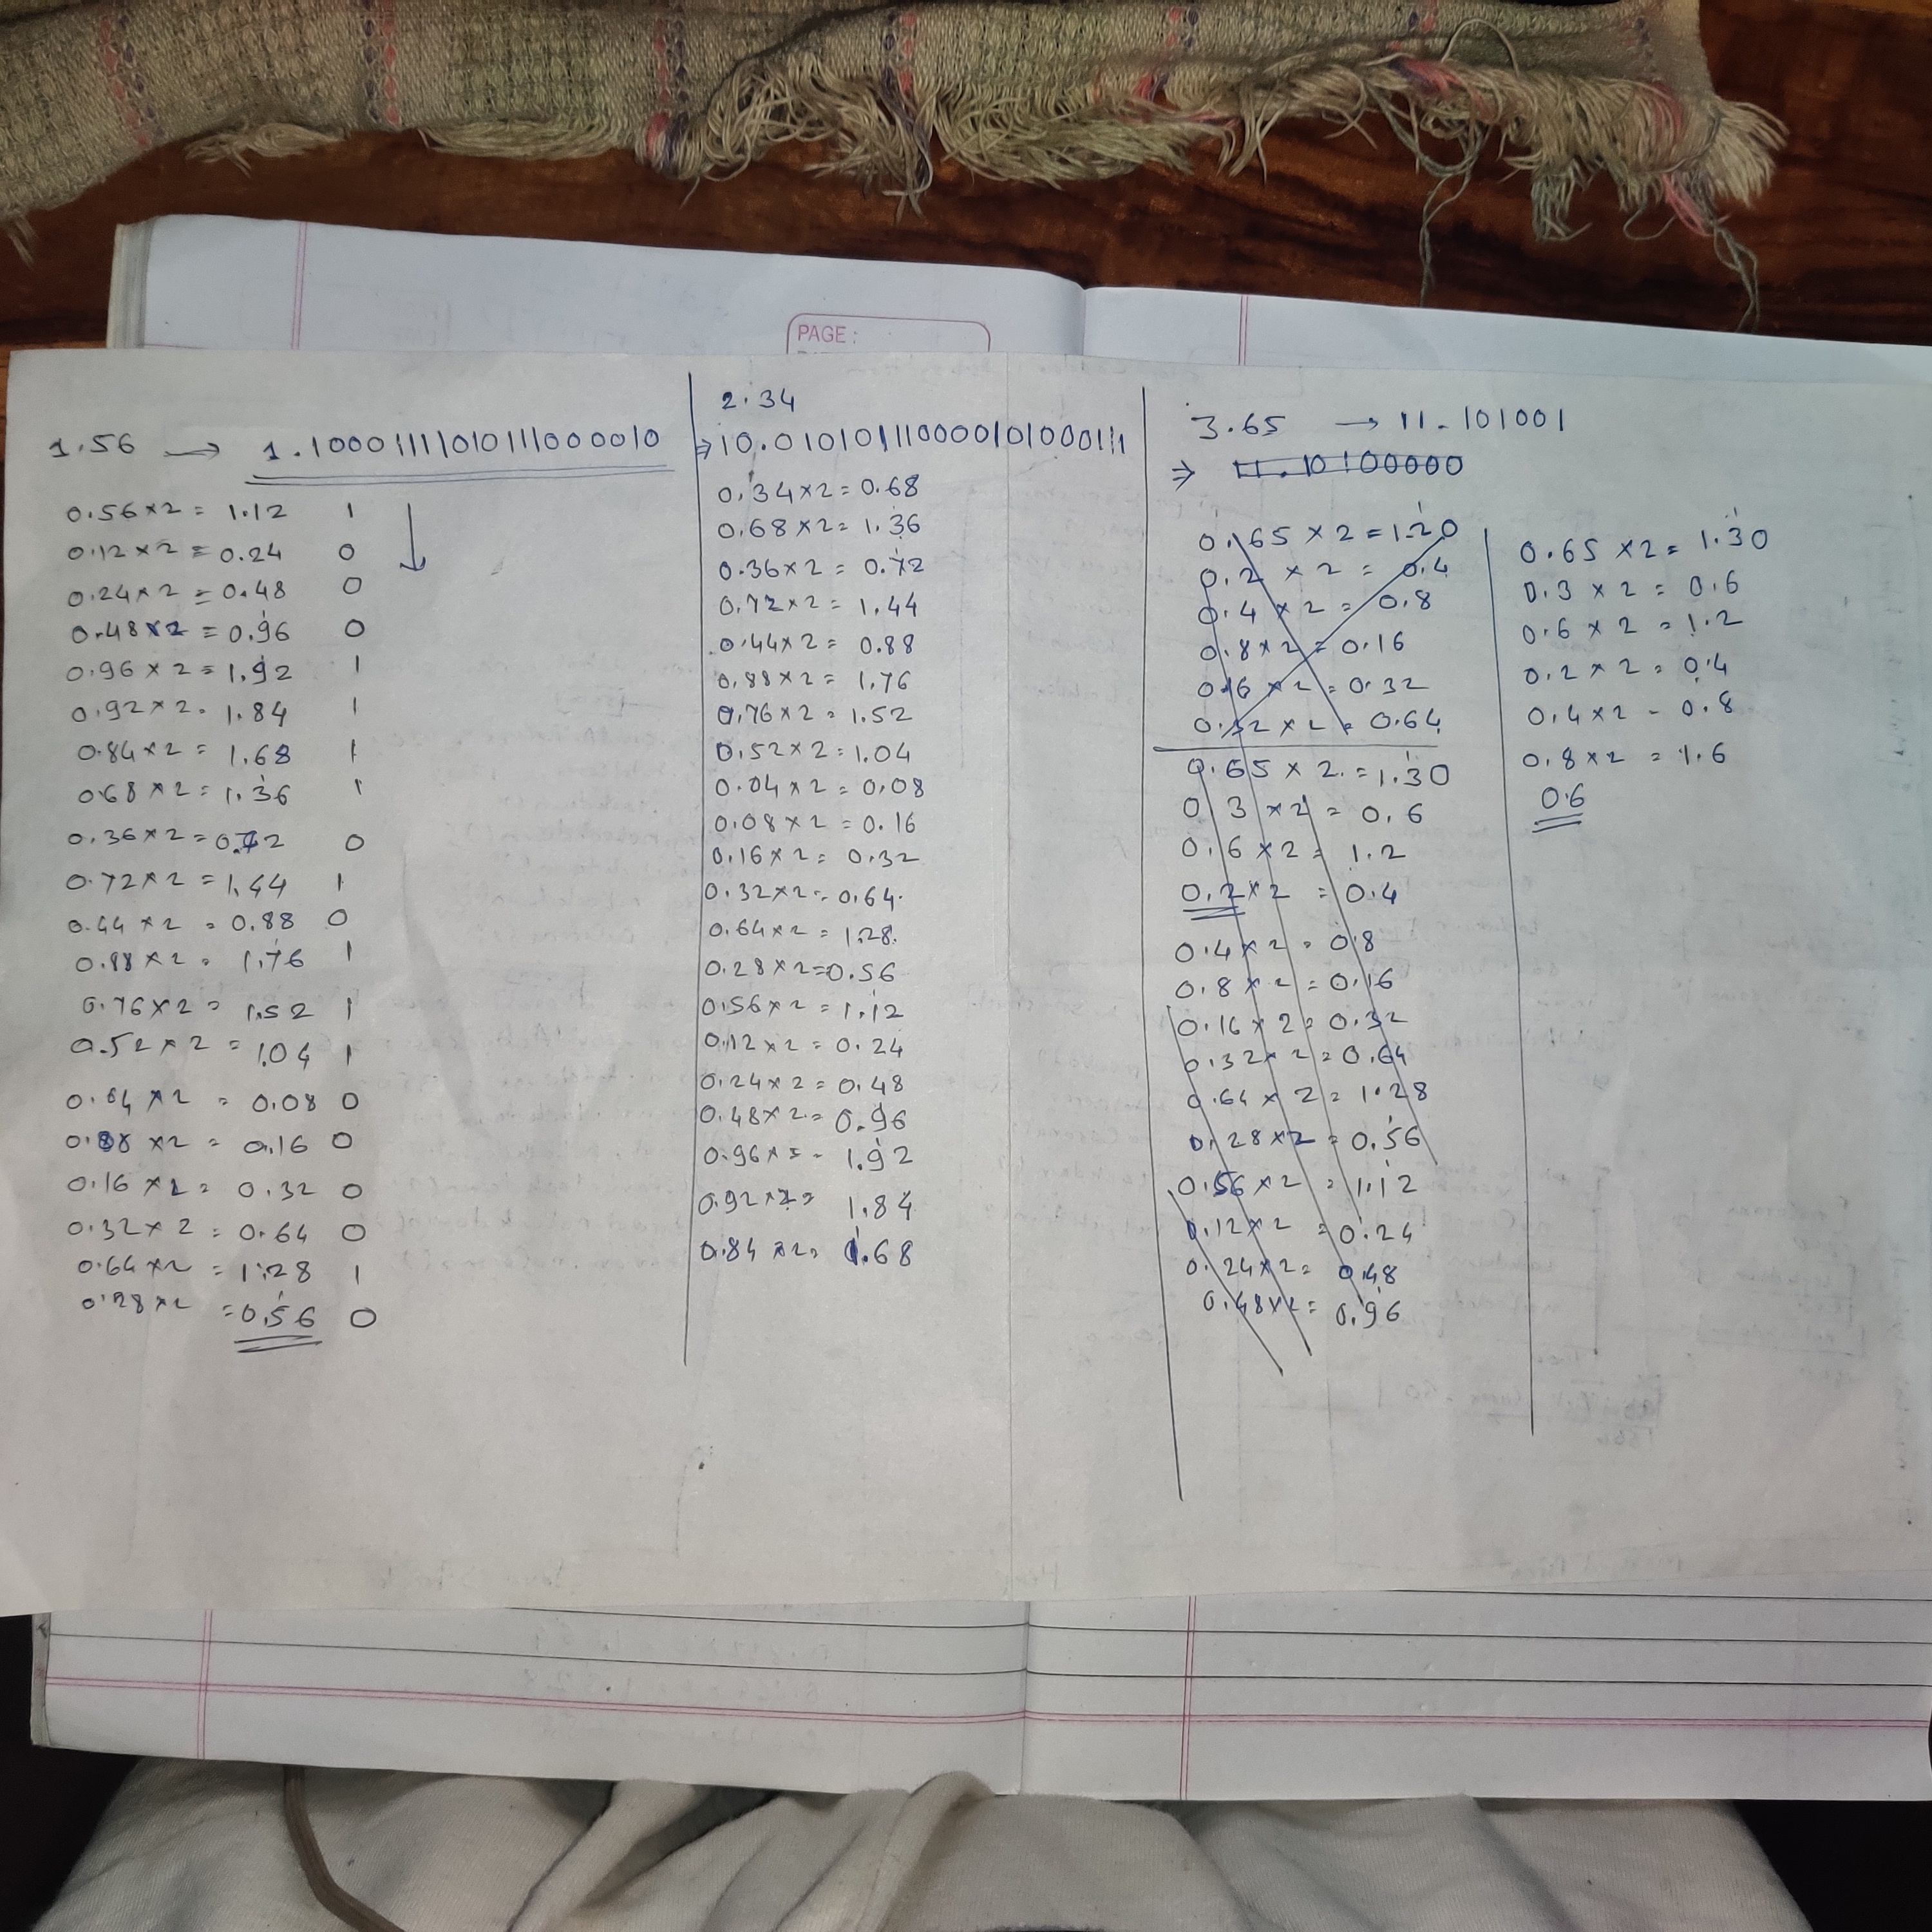 PAGE :
1.56 → 1.10001111010111000010
0.56×2 = 1.12 1
0.12×2 = 0.24 0
0.24×2 = 0.48 0
0.48×2 = 0.96 0
0.96×2 = 1.92 1
0.92×2 = 1.84 1
0.84×2 = 1.68 1
0.68×2 = 1.36 1
0.36×2 = 0.72 0
0.72×2 = 1.44 1
0.44×2 = 0.88 0
0.88×2 = 1.76 1
0.76×2 = 1.52 1
0.52×2 = 1.04 1
0.04×2 = 0.08 0
0.08×2 = 0.16 0
0.16×2 = 0.32 0
0.32×2 = 0.64 0
0.64×2 = 1.28 1
0.28×2 = 0.56 0
2.34
⇒ 10.010101110000101000111
0.34×2 = 0.68
0.68×2 = 1.36
0.36×2 = 0.72
0.72×2 = 1.44
0.44×2 = 0.88
0.88×2 = 1.76
0.76×2 = 1.52
0.52×2 = 1.04
0.04×2 = 0.08
0.08×2 = 0.16
0.16×2 = 0.32
0.32×2 = 0.64
0.64×2 = 1.28
0.28×2=0.56
0.56×2 = 1.12
0.12×2 = 0.24
0.24×2 = 0.48
0.48×2 = 0.96
0.96×2 = 1.92
0.92×2 = 1.84
0.84×2 = 1.68
3.65 → 11.101001
⇒ 11.10100000
0.65×2 = 1.20
0.2 × 2 = 0.4
0.4 × 2 = 0.8
0.8×2 = 0.16
0.16 × 2 = 0.32
0.32 × 2 = 0.64
0.65 × 2 = 1.30
0.3 ×2 = 0.6
0.6 ×2 = 1.2
0.2×2 = 0.4
0.4×2 = 0.8
0.8×2 = 0.16
0.16×2 = 0.32
0.32×2 = 0.64
0.64×2 = 1.28
0.28×2 = 0.56
0.56×2 = 1.12
0.12×2 = 0.24
0.24×2 = 0.48
0.48×2 = 0.96
0.65×2 = 1.30
0.3 × 2 = 0.6
0.6 × 2 = 1.2
0.2 × 2 = 0.4
0.4×2 = 0.8
0.8×2 = 1.6
0.6